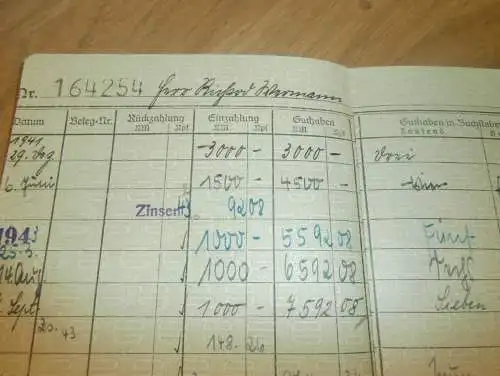 Nr. 164254 Herr Richard Wermann
Datum Beleg-Nr. Rückzahlung RM Rpf Einzahlung RM Rpf Guthaben RM Rpf Guthaben in Buchstaben Tausend
1941
29. 3000 - 3000 - Drei
6. Juni 1500 - 4500 - Vier
Zinsen 43 92 08
194
25.3. 1000 - 5592 08 Fünf
14. Aug 1000 - 6592 08 Sechs
Sept 1000 - 7592 08 Sieben
43
148 - 26